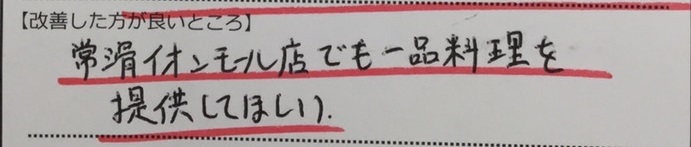 【改善した方が良いところ】
常滑イオンモール店でも一品料理を
提供してほしい.